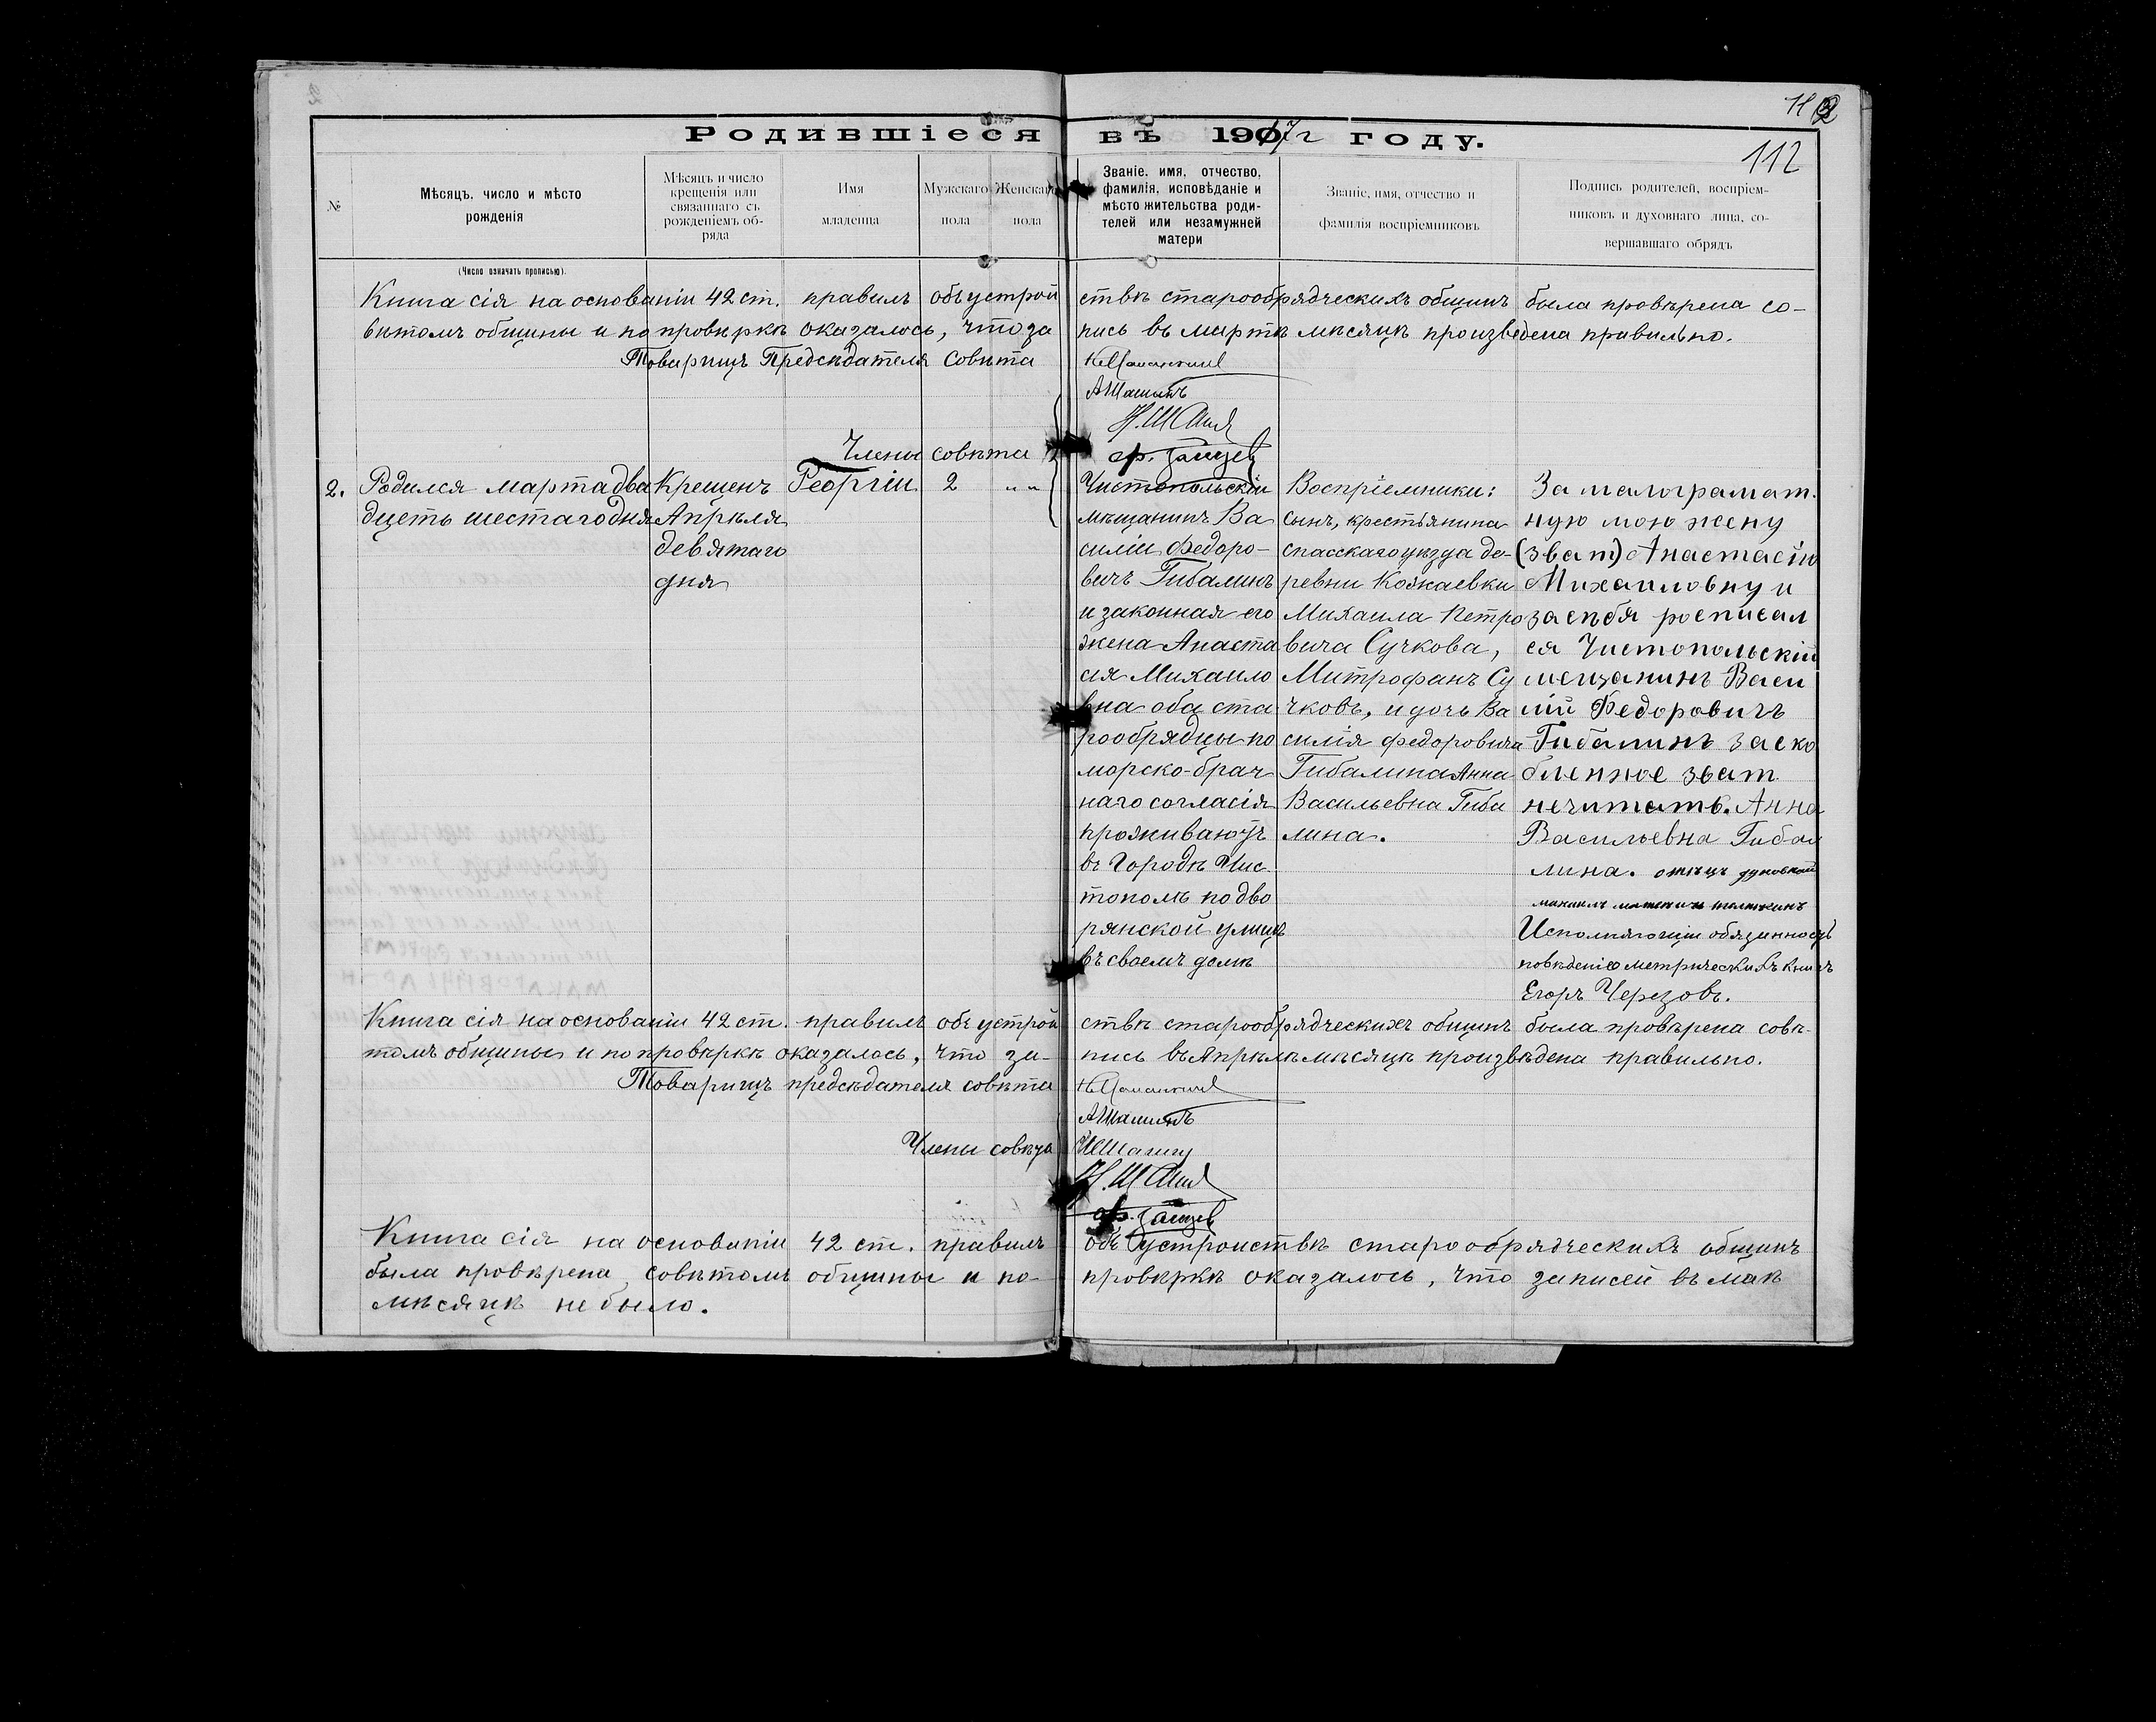 112
Родившіеся въ 1917 г году.
112
№
Мѣсяцъ, число и мѣсто
рожденія
Мѣсяцъ и число
крещенія или
связаннаго съ
рожденіемъ об-
ряда
Имя
младенца
Мужскаго
пола
Женскаго
пола
Званіе, имя, отчество,
фамилія, исповѣданіе и
мѣсто жительства роди-
телей или незамужней
матери
Званіе, имя, отчество и
фамилія воспріемниковъ
Подпись родителей, воспріем-
никовъ и духовнаго лица, со-
вершавшаго обрядъ
(Число означать прописью).
Книга сія на основаніи 42 ст. правилъ объ устрой ствѣ старообрядческихъ общинъ была провѣрена со-
вѣтомъ общины и по провѣркѣ оказалось, что за пись въ мартѣ мѣсяцѣ произведена правильно.
Товарищъ Предсѣдателя Совѣта
АШашинъ
Н.Ш
Члены совѣта
2.
Родился марта два
дцеть шестаго дня
Крещенъ
Апрѣля
девятаго
дня
Георгій
2
„ „
Чистопольскій
мѣщанинъ Ва
силій Федоро-
вичъ Гибалинъ
и законная его
жена Анаста
сія Михаило
вна оба ста
рообрядцы по
морско-брач
наго согласія
проживаютъ
въ Городѣ Чис
тополѣ по дво
рянской улицѣ
въ своемъ домѣ
Воспріемники:
сынъ, крестьянина
спасскаго уѣзда де-
ревни Кожаевки
Михаила Петро
вича Сучкова,
Митрофанъ Су
чковъ, и дочь Ва
силія Федоровича
Гибалина Анна
Васильевна Гиба
лина.
За малограмат.
ную мою жену
(зват) Анастасію
Михаиловну и
за себя росписал
ся Чистопольскій
мещанинъ Васи
лій Федоровичъ
Гибалинъ заско
бленное зват
нечитать. Анна
Васильевна Гибал
лина. отецъ духовной
Исполняющій обязанность
по веденію метрическихъ книгъ
Егоръ Черезовъ.
Книга сія на основаніи 42 ст. правилъ объ устрой ствѣ старообрядческихъ общинъ была провѣрена совѣ-
томъ общины и по провѣркѣ оказалось, что за- пись въ Апрѣлѣ мѣсяцѣ произвѣдена правильно.
Товарищъ предсѣдателя совѣта
АШашинъ
Члены совѣта
Н.Ш
Книга сія на основаніи 42 ст. правилъ объ устроиствѣ старообрядческихъ общинъ
была провѣрена совѣтомъ общины и по- провѣркѣ оказалось, что записей въ маѣ
мѣсяцѣ не было.